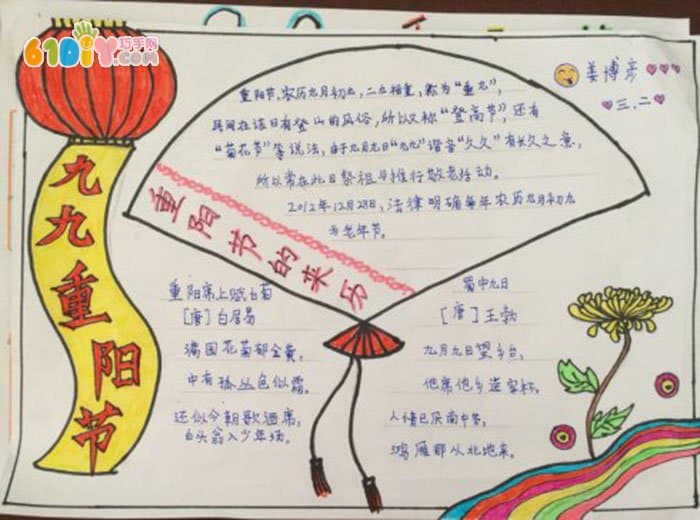 61DIY.com 巧手网
九九重阳节
姜博彦
三.二
重阳节,农历九月初九,二九相重,称为“重九”,
民间在该日有登山的风俗,所以又称“登高节”,还有
“菊花节”等说法,由于九月九日“九九”谐音“久久”有长久之意,
所以常在此日祭祖与推行敬老活动。
2012年12月28日,法律明确每年农历九月初九
为老年节。
重阳节的来历
重阳席上赋白菊
[唐]白居易
满园花菊郁金黄,
中有孤丛色似霜。
还似今朝歌酒席,
白头翁入少年场。
蜀中九日
[唐]王勃
九月九日望乡台,
他席他乡送客杯。
人情已厌南中苦,
鸿雁那从北地来。